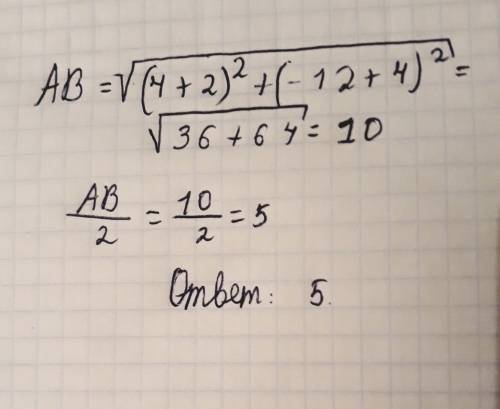 AB = √((4 + 2)² + (-12 + 4)²) =
√(36 + 64) = 10
AB/2 = 10/2 = 5
Ответ: 5.